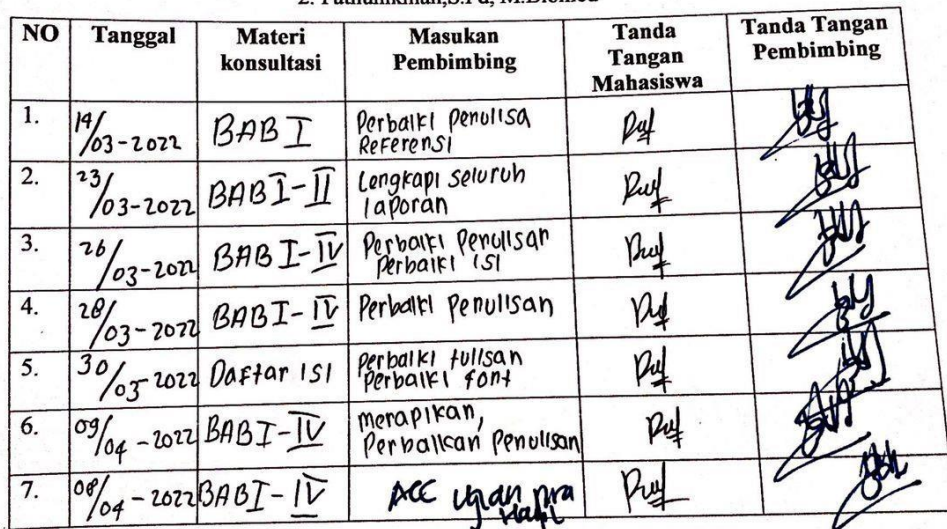 2. Fathulikhlan,S.Pd, M.Biomed
NO Tanggal Materi konsultasi Masukan Pembimbing Tanda Tangan Mahasiswa Tanda Tangan Pembimbing
1. 14/03-2022 BAB I Perbaiki Penulisa Referensi
2. 23/03-2022 BAB I-II Lengkapi seluruh laporan
3. 26/03-2022 BAB I-IV Perbaiki Penulisan Perbaiki isi
4. 28/03-2022 BAB I-IV Perbaiki Penulisan
5. 30/03-2022 Daftar isi Perbaiki tulisan Perbaiki font
6. 09/04-2022 BAB I-IV merapikan, Perbaikan Penulisan
7. 08/04-2022 BAB I-IV ACC Ujian pra Hasil